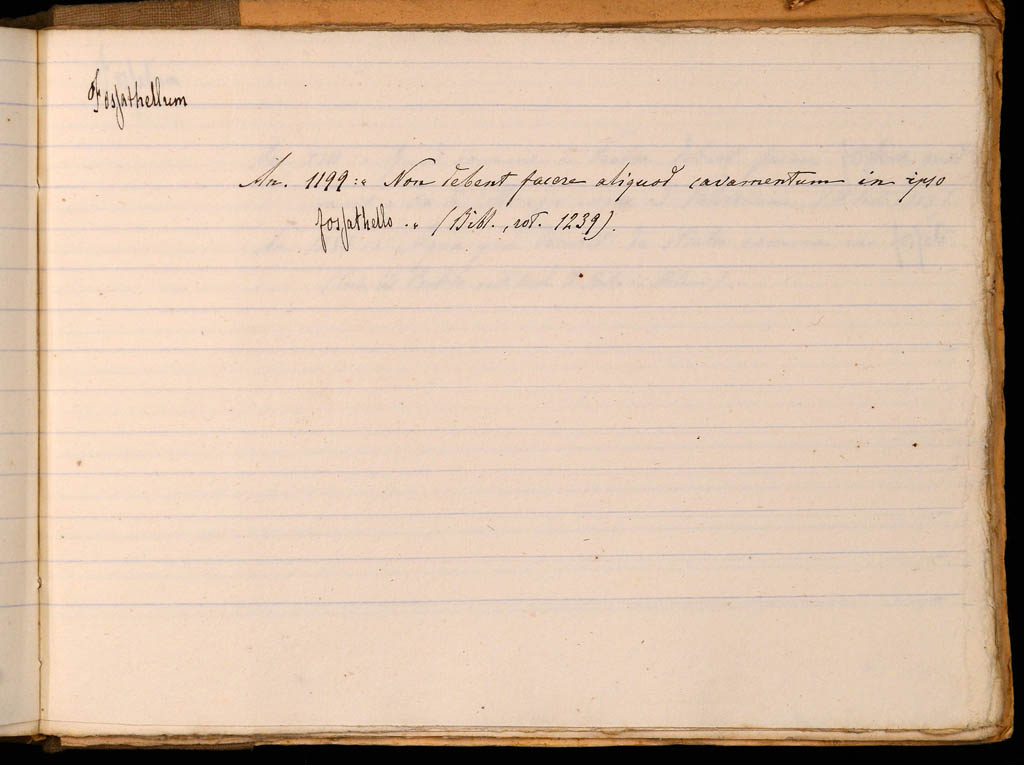 Fossathellum
An. 1199: „ Non debent facere aliquod cavamentum in ipso
fossathello. „ (Bibl., rot. 1239).